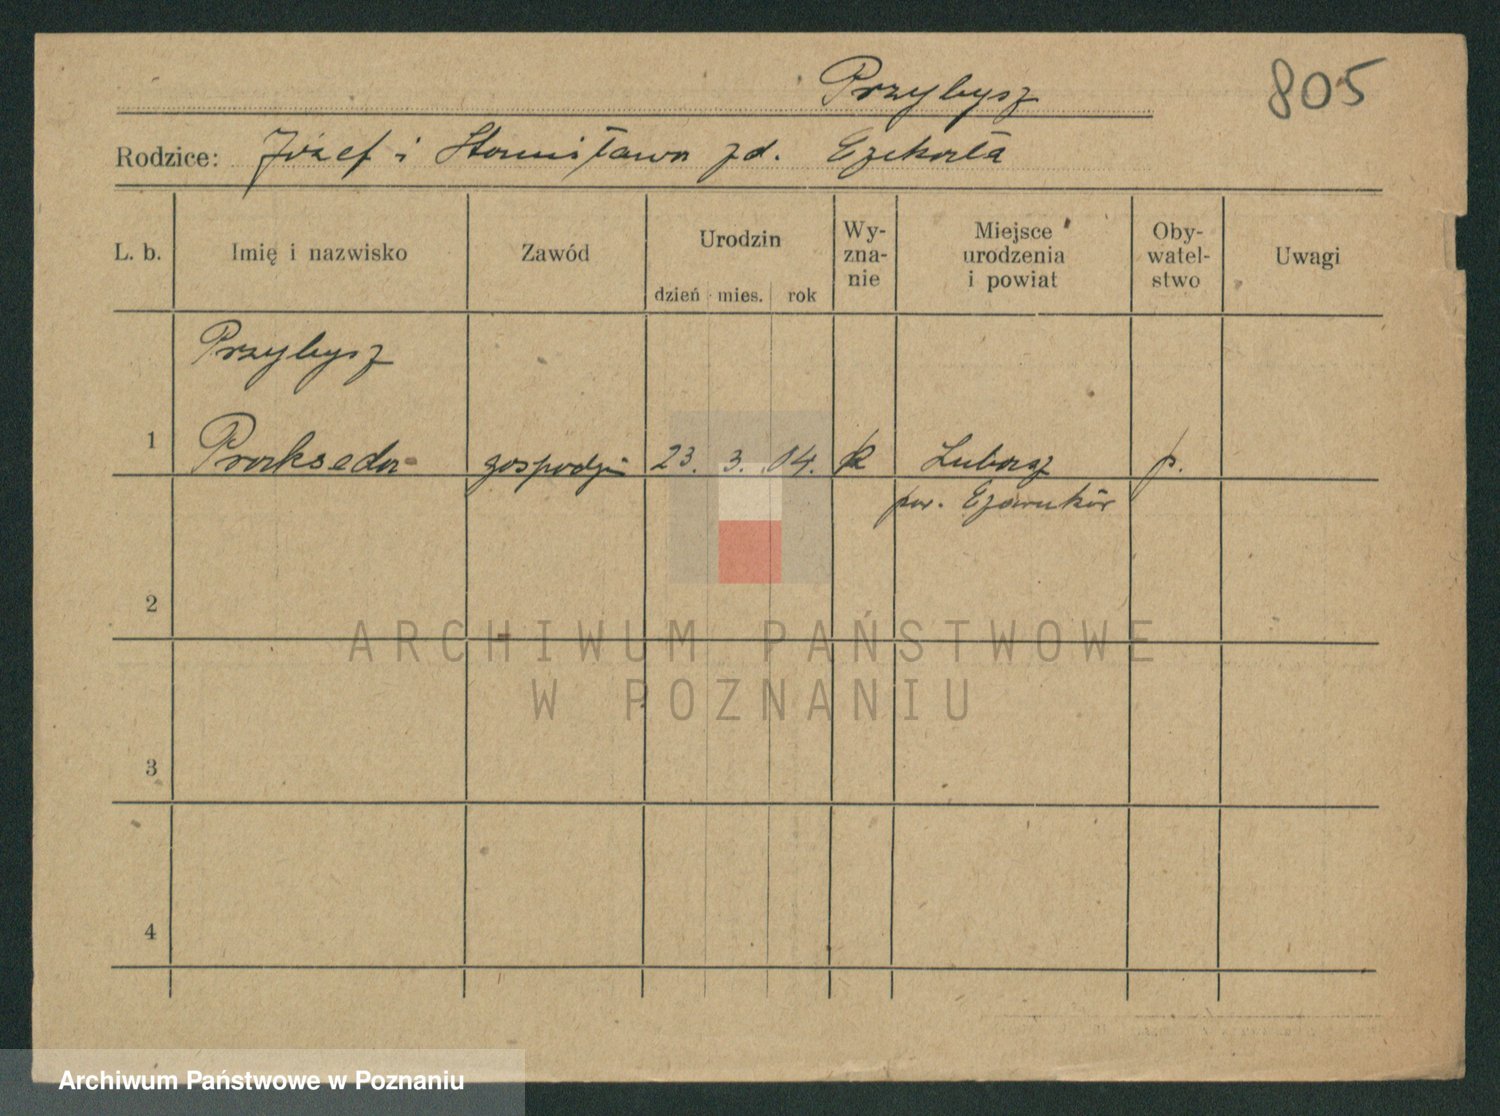 Przybysz
805
Rodzice: Józef i Stanisława zd.
L. b. Imię i nazwisko Zawód Urodzin Wy-zna-nie Miejsce urodzenia i powiat Oby-watel-stwo Uwagi
dzień mies. rok
Przybysz
1 Prakseda gospodyni 23. 3. 04. rk Lubasz p.
pow. Czarnków
2
3
4
ARCHIWUM PAŃSTWOWE
W POZNANIU
Archiwum Państwowe w Poznaniu